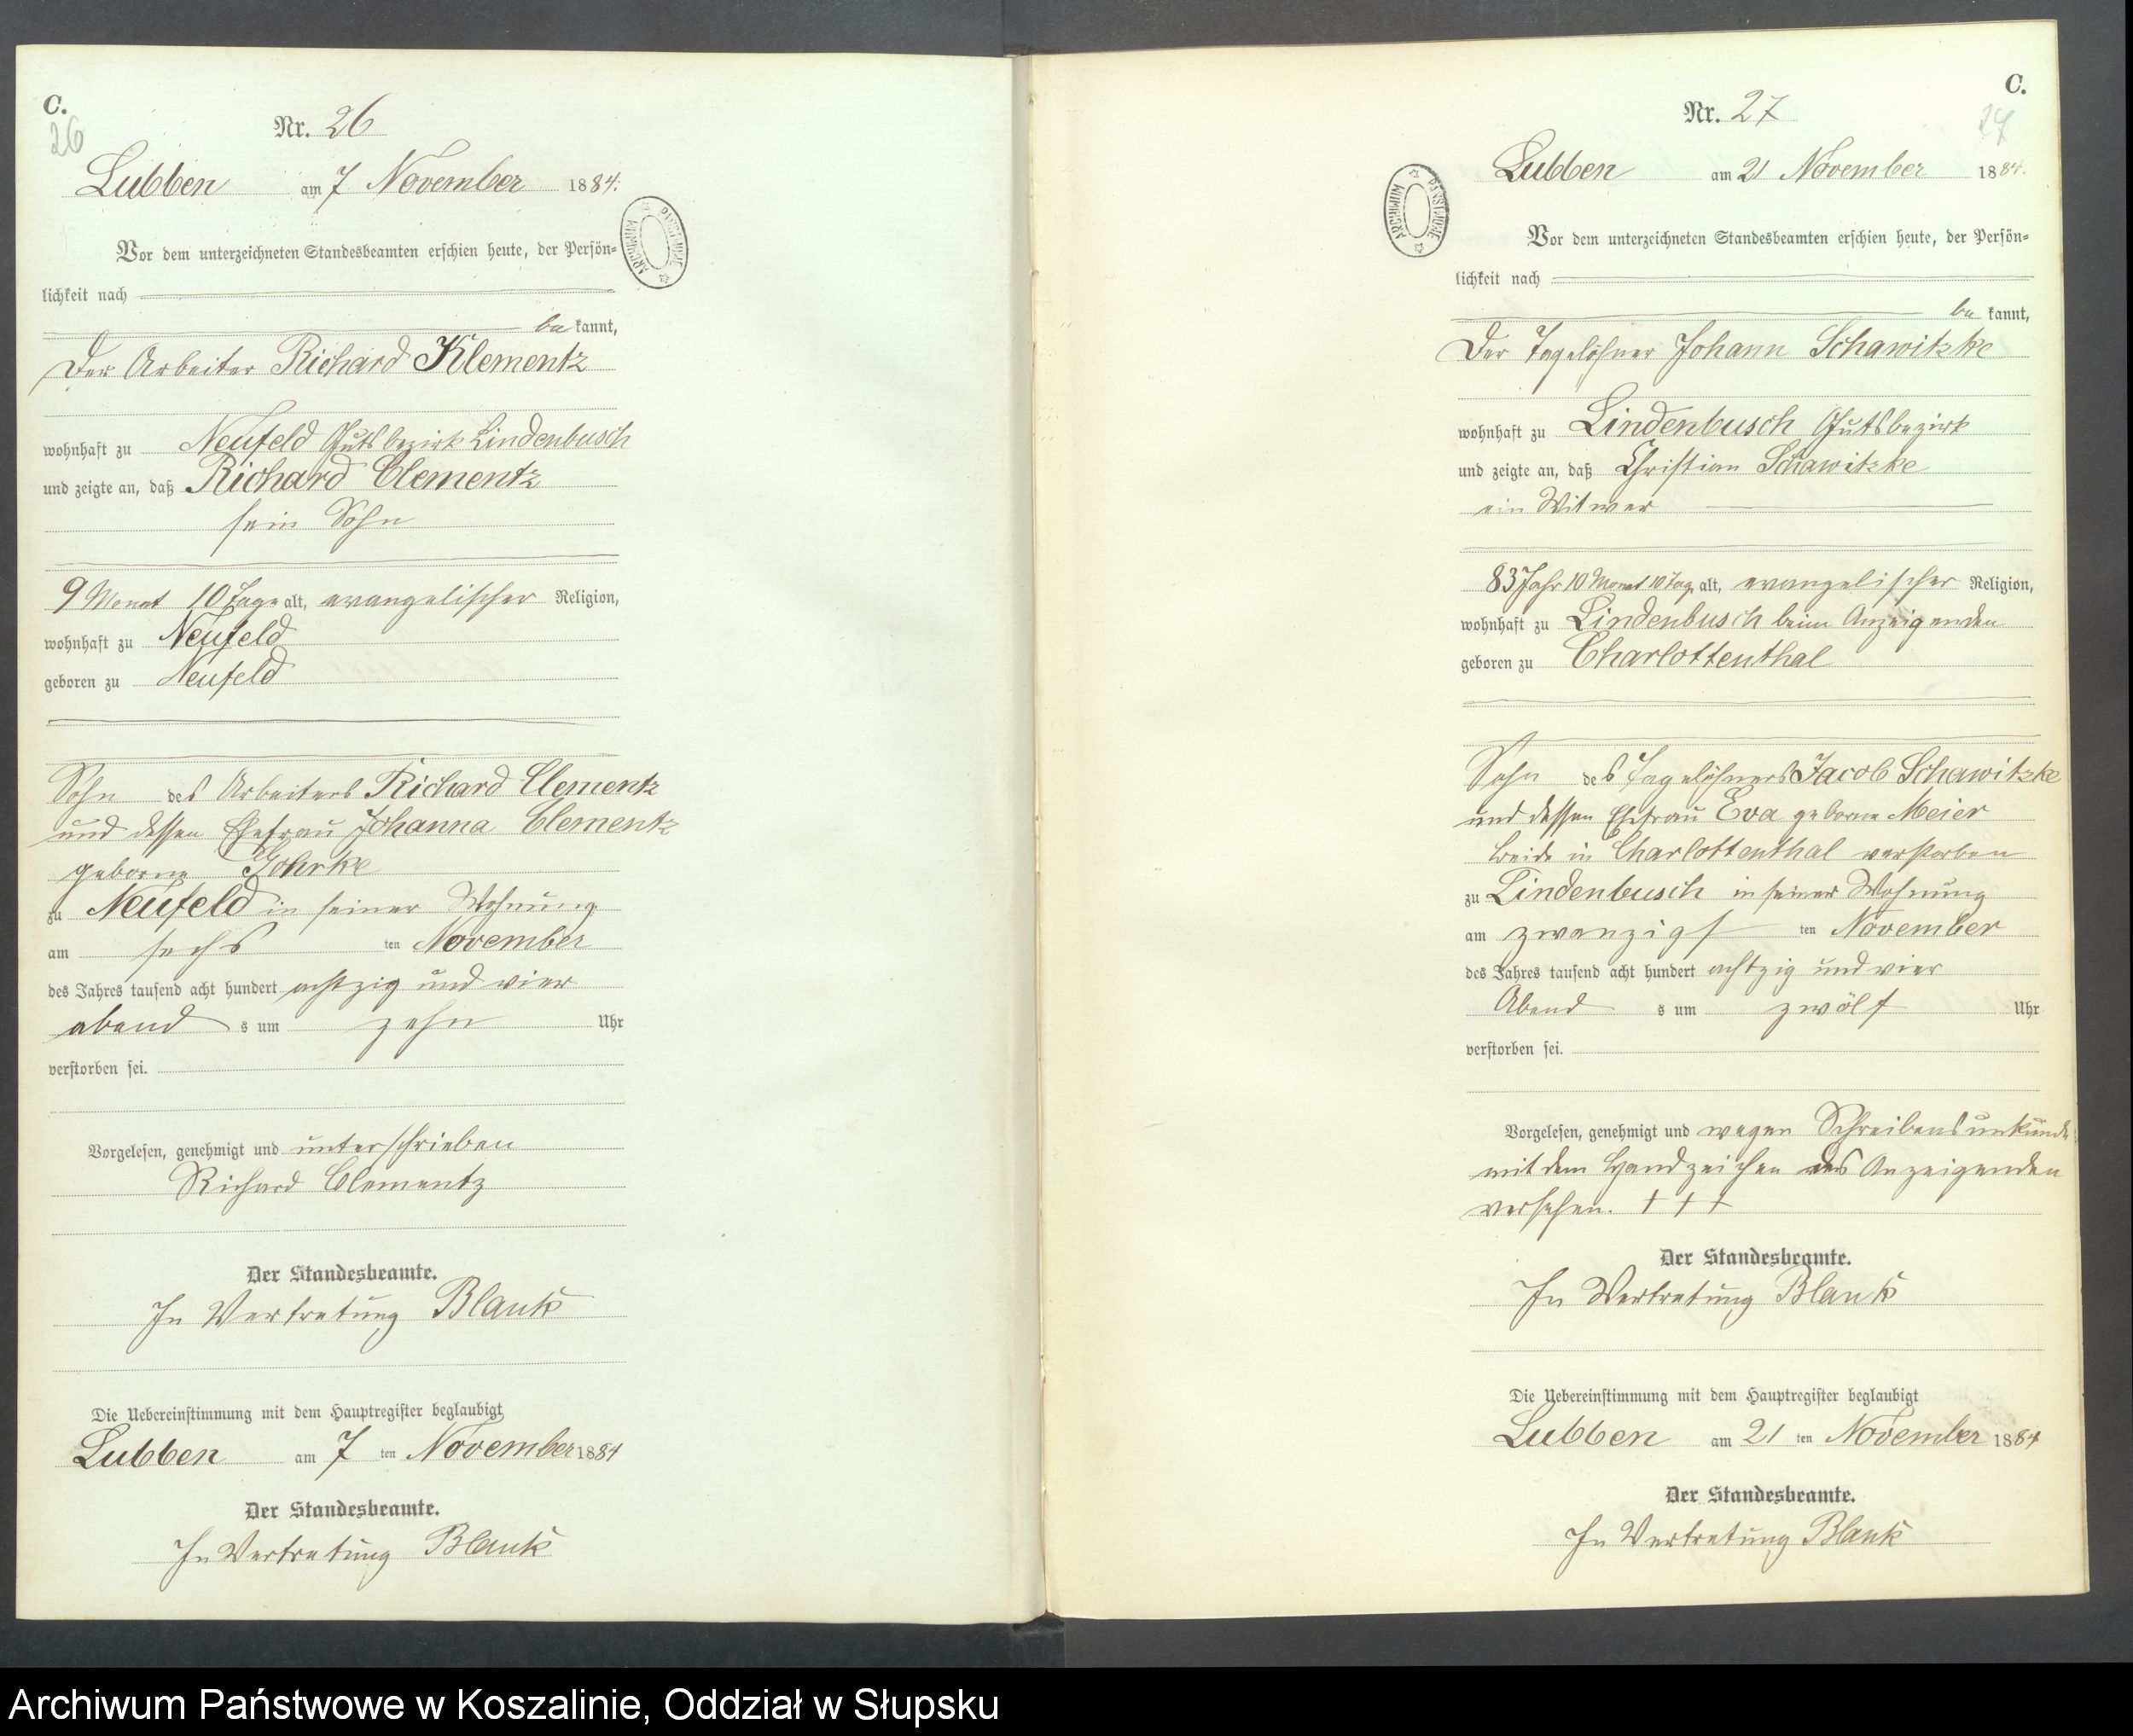 C.
26
Nr. 26
Lubben am 7 November 1884.
Vor dem unterzeichneten Standesbeamten erschien heute, der Persön=
lichkeit nach
be kannt,
Der Arbeiter Richard Klementz
wohnhaft zu Neufeld Gutsbezirk Lindenbusch
und zeigte an, daß Richard Clementz
sein Sohn
9 Monat 10 Tage alt, evangelischer Religion,
wohnhaft zu Neufeld
geboren zu Neufeld
Sohn des Arbeiters Richard Clementz
und dessen Ehefrau Johanna Clementz
geborne
zu Neufeld in seiner Wohnung
am sechs ten November
des Jahres tausend acht hundert achtzig und vier
abend s um zehn Uhr
verstorben sei.
Vorgelesen, genehmigt und unterschrieben
Richard Clementz
Der Standesbeamte.
In Vertretung Blank
Die Uebereinstimmung mit dem Hauptregister beglaubigt
Lubben am 7 ten November 1884
Der Standesbeamte.
In Vertretung Blank
ARCHIWUM PAŃSTWOWE
C.
27
Nr. 27
Lubben am 21 November 1884.
Vor dem unterzeichneten Standesbeamten erschien heute, der Persön=
lichkeit nach
be kannt,
Der Tagelöhner Johann Schawitzke
wohnhaft zu Lindenbusch Gutsbezirk
und zeigte an, daß Christian Schawitzke
ein Witwer
83 Jahr 10 Monat 10 Tag alt, evangelischer Religion,
wohnhaft zu Lindenbusch beim Anzeigenden
geboren zu Charlottenthal
Sohn des Tagelöhners Jacob Schawitzke
und dessen Ehefrau Eva geborne Meier
beide in Charlottenthal verstorben
zu Lindenbusch in seiner Wohnung
am zwanzigs ten November
des Jahres tausend acht hundert achtzig und vier
Abend s um zwölf Uhr
verstorben sei.
Vorgelesen, genehmigt und wegen Schreibensunkunde
mit dem Handzeichen des Anzeigenden
versehen. + + +
Der Standesbeamte.
In Vertretung Blank
Die Uebereinstimmung mit dem Hauptregister beglaubigt
Lubben am 21 ten November 1884
Der Standesbeamte.
In Vertretung Blank
ARCHIWUM PAŃSTWOWE
Archiwum Państwowe w Koszalinie, Oddział w Słupsku